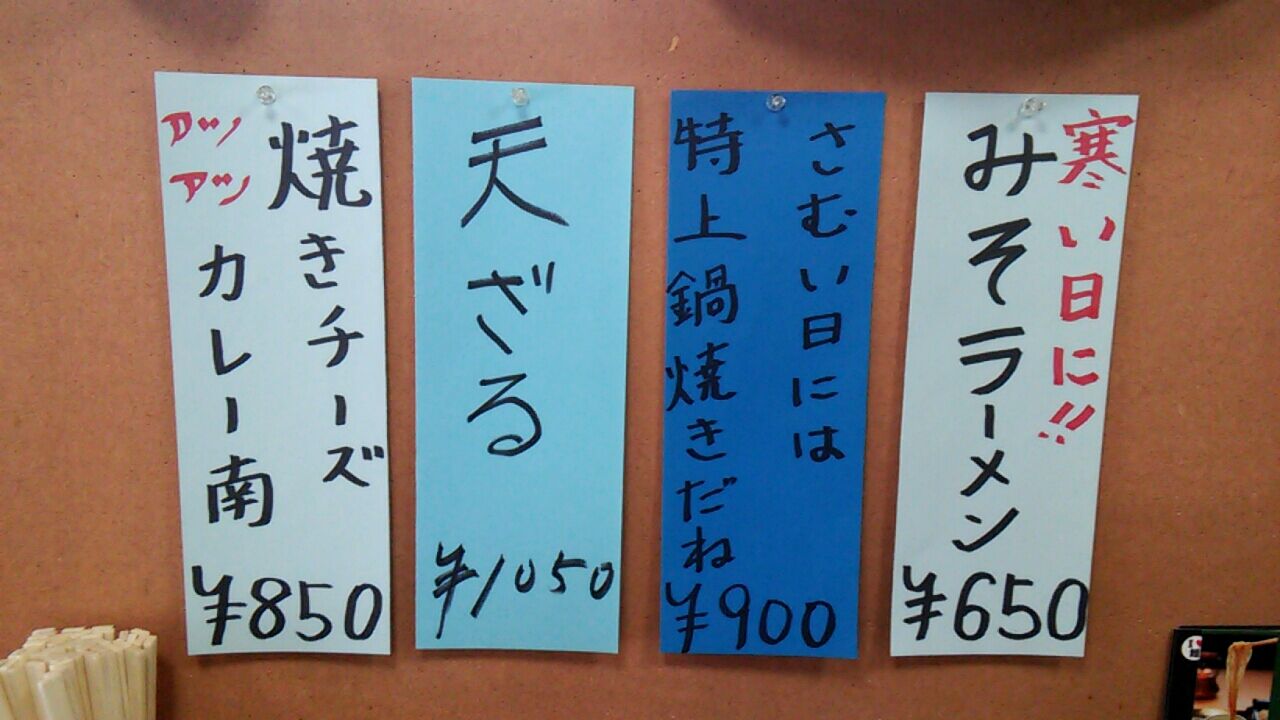 寒い日に!!
みそラーメン
¥650
さむい日には
特上鍋焼きだね
¥900
天ざる
¥1050
焼きチーズ
アツアツ
カレー南
¥850